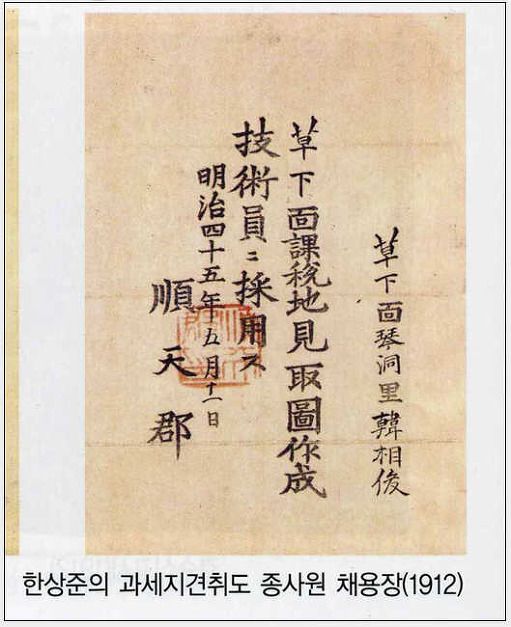 草下面琴洞里 韓相俊
草下面課稅地見取圖作成
技術員ニ採用ス
明治四十五年五月十一日
順天郡
한상준의 과세지견취도 종사원 채용장(1912)